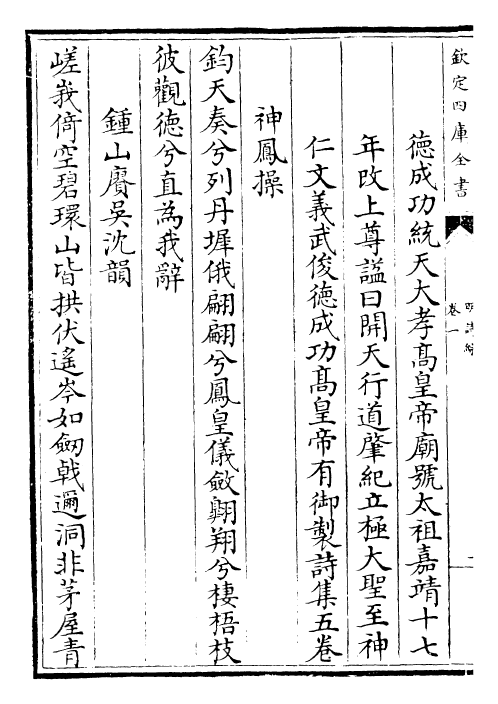 欽定四庫全書
明詩綜
卷一
德成功統天大孝高皇帝廟號太祖嘉靖十七
年改上尊諡曰開天行道肇紀立極大聖至神
仁文義武俊德成功高皇帝有御製詩集五卷
神鳳操
鈞天奏兮列丹墀俄翩翩兮鳳皇儀斂翺翔兮棲梧枝
彼觀德兮直為我辭
鍾山賡吳沈韻
嵯峩倚空碧環山皆拱伏遙岑如劒戟邇洞非茅屋青